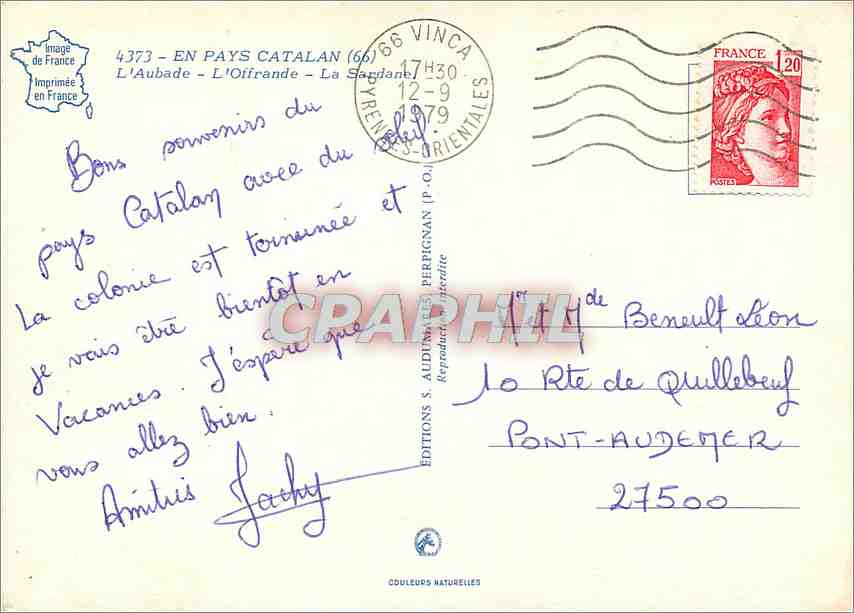 Image
de France
Imprimée
en France
4373 - EN PAYS CATALAN (66)
L'Aubade - L'Offrande - La Sardane
66 VINCA
17H30
12-9
1979
PYRENEES-ORIENTALES
FRANCE 1,20
POSTES
Bons souvenirs du
pays Catalan avec du soleil.
La colonie est terminée et
je vais être bientôt en
Vacances. J'espère que
vous allez bien.
Amitiés Jacky
EDITIONS S. AUDUMARES, PERPIGNAN (P.-O.)
Reproduction interdite
CPAPHIL
Mr et Mde Beneult Léon
10 Rte de Quillebeuf
PONT-AUDEMER
27500
COULEURS NATURELLES